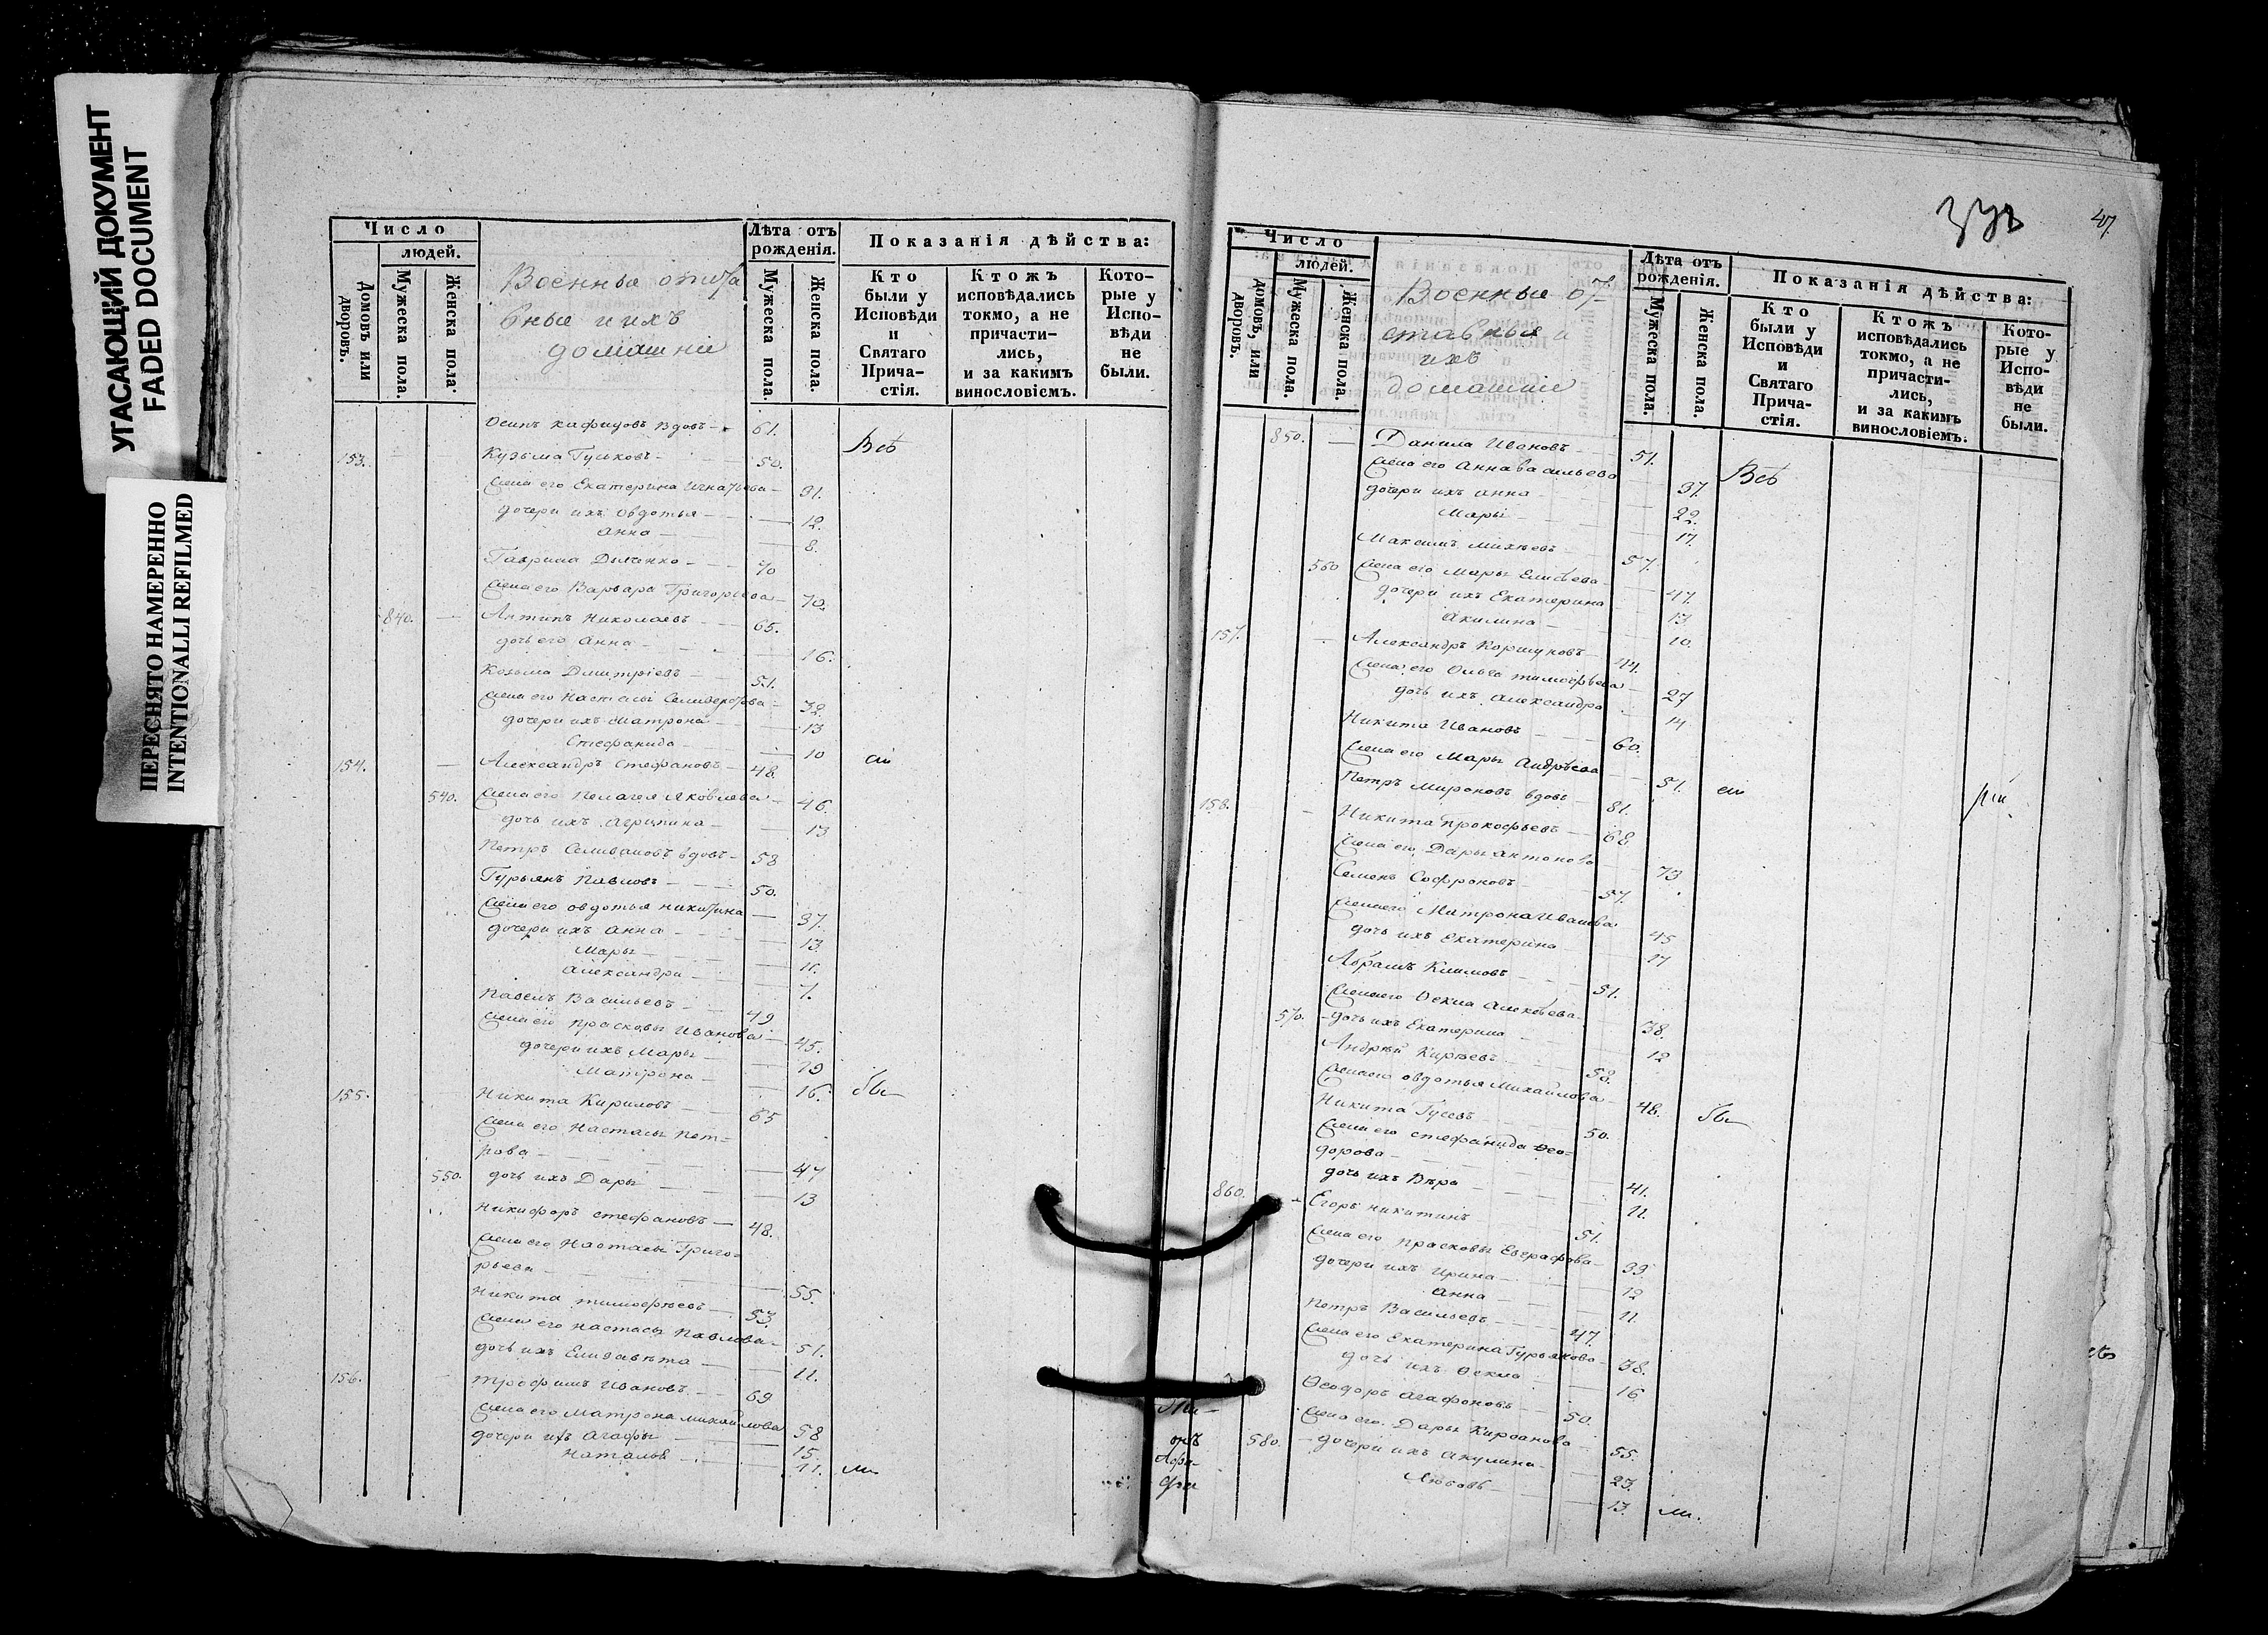 УГАСАЮЩИЙ ДОКУМЕНТ
FADED DOCUMENT
ПЕРЕСНЯТО НАМЕРЕННО
INTENTIONALLI REFILMED
Число
людей.
Домовъ или дворовъ.
Мужеска пола.
Женска пола.
Военные отста
вные и ихъ
домашніе
Лѣта отъ рожденія.
Мужеска пола.
Женска пола.
Показанія дѣйства:
Кто были у Исповѣди и Святаго Прича- стія.
Ктожъ исповѣдались токмо, а не причасти- лись, и за какимъ винословіемъ.
Кото- рые у Испо- вѣди не были.
Осипъ вдовъ 61. Всѣ
153. Кузьма Гуськовъ 50.
Жена его Екатерина Игнатьева 31.
дочери ихъ Овдотья 12.
Анна 8.
Гаврила 70
Жена его Варвара Григорьева 70.
840. Антипъ Николаевъ 65.
дочь его Анна 16.
Козьма Дмитріевъ 51.
Жена его Настасья 32.
дочери ихъ Матрона 13
Стефанида 10
154. Александръ Стефановъ 48.
540. Жена его Пелагея Яковлева 46.
дочь ихъ Агрипина 13
Петръ Селивановъ вдовъ 58
Гурьянъ Павловъ 50.
Жена его Овдотья Никитина 37.
дочери ихъ Анна 13
Марья 11.
Александра 7.
Павелъ Васильевъ 49
Жена его Прасковья Иванова 45.
дочери ихъ Марья 19
Матрона 16.
155. Никита Кириловъ 65
Жена его Настасья Пет=
рова 47
550. дочь ихъ Дарья 13
Никифоръ Стефановъ 48.
Жена его Настасья Григо=
рьева 55.
Никита Тимофѣевъ 53.
Жена его Настасья Павлова 51.
дочь ихъ Елизавѣта 11.
156. Трофимъ Ивановъ 69
Жена его Матрона Михайлова 58
дочери ихъ Агафья 15.
Наталья 11.
47.
Число
людей.
Домовъ, или дворовъ.
Мужеска пола.
Женска пола.
Военные от-
ставные и
ихъ
домашніе
Лѣта отъ рожденія.
Мужеска пола.
Женска пола.
Показанія дѣйства:
Кто были у Исповѣди и Святаго Прича- стія.
Ктожъ исповѣдались токмо, а не причасти- лись, и за какимъ винословіемъ.
Кото- рые у Испо- вѣди не были.
850. Данила Ивановъ 51. Всѣ
Жена его Анна Васильева 37.
дочери ихъ Анна 22.
Марья 17.
Максимъ Михѣевъ 57.
560 Жена его Марья Елисѣева 47.
дочери ихъ Екатерина 13
Акилина 10.
157. Александръ Коршуновъ 44.
Жена его Ольга Тимофѣева 27
дочь ихъ Александра 14
Никита Ивановъ 60.
Жена его Марья Андрѣева 51.
Петръ Мироновъ вдовъ 81.
158. Никита Прокофьевъ 68
Жена его Дарья Антонова 73
Семенъ Софроновъ 57.
Жена его Матрона Иванова 45
дочь ихъ Екатерина 17
Абрамъ Климовъ 51.
Жена его Ѳекла Алексѣева 38.
570. дочь ихъ Екатерина 12
Андрѣй Кирѣевъ 58.
Жена его Овдотья Михайлова 48.
Никита Гусевъ 50.
Жена его Стефанида Ѳео=
дорова 41.
дочь ихъ Вѣра 11.
860. Егоръ Никитинъ 51.
Жена его Прасковья Евграфова 39.
дочери ихъ Ирина 12
Анна 11.
Петръ Васильевъ 47.
Жена его Екатерина Гурьянова 38.
дочь ихъ Ѳекла 16
Ѳеодоръ Агафоновъ 50.
Жена его Дарья 55.
580. дочери ихъ Акулина 23.
Любовь 13